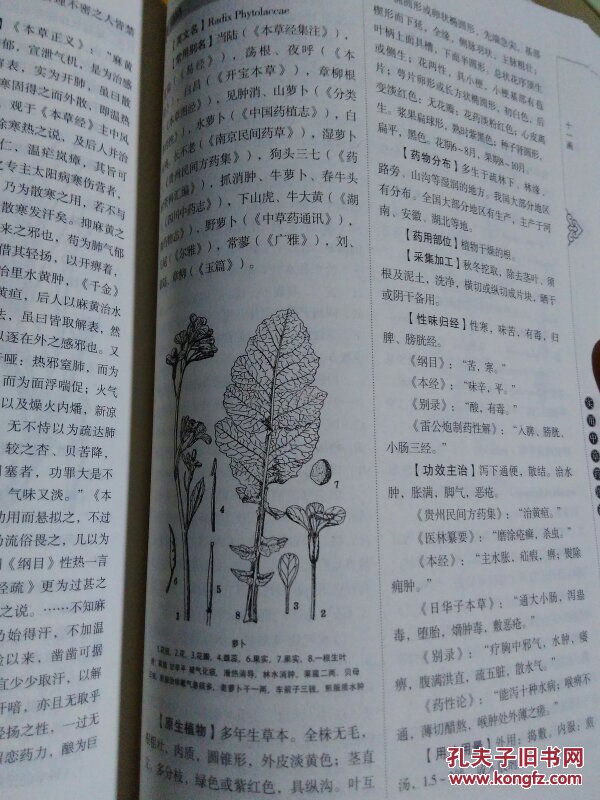 理不密之人皆禁
《本草正义》：“麻黄
宣泄气机，是为治感
解表，实为开肺，虽曰散
固得之而外散、即温热
观于《本草经》主中风
除寒热之说，及后人并治
仁，温疟岚瘴，其旨可
专主太阳病寒伤营者，
乃为散寒之用，若不与
散寒发汗矣。抑麻黄之
来之邪也，苟为肺气郁
借其轻扬，以开痹着，
治里水黄肿，《千金》
黄疸，后人以麻黄治水
法，虽曰皆取解表，然
以逐在外之感邪也。又
哑：热邪窒肺，而为
而为面浮喘促；火气
以及燥火内燔，新凉
无不恃以为疏达肺
较之杏、贝苦降，
塞者，功罪大是不
气味又淡。”《本
功用而悬拟之，不过
为流俗畏之，几以为
《纲目》性热一言
经疏》更为过甚之
之说。……不知麻
乃始得汗，不加温
以来，凿凿可据
宜少少取汗，以解
汗暗，亦且无取乎
轻扬之性，一过无
恋药力，酿为巨
【英文名】Radix Phytolaccae
【常用别名】当陆（《本草经集注》），
《易经》），荡根、夜呼（《本
白昌（《开宝本草》），章柳根
《图经》），见肿消、山萝卜（《分类
），水萝卜（《中国药植志》），白
长不老（《南京民间药草》），湿萝卜
《贵州民间方药集》），狗头三七（《药
汇编》），抓消肿、牛萝卜、春牛头
《四川中药志》），下山虎、牛大黄（《湖
），野萝卜（《中草药通讯》），
《尔雅》），常蓼（《广雅》），刘、
章柳（《玉篇》）。
1
2
6
7
8
萝卜
1.花枝，2.花，3.花瓣，4.雄蕊，6.果实，7.果实，8.一根生叶
【原生植物】多年生草本。全株无毛，
肉质，圆锥形，外皮淡黄色；茎直
多分枝，绿色或紫红色，具纵沟。叶互
椭圆形或卵状椭圆形，先端急尖，基部
楔形而下延，全缘，侧脉羽状，主脉粗壮；
叶柄上面具槽，下面半圆形。总状花序顶生
或侧生；花两性，具小梗，小梗基部有苞
片；萼片卵形或长方状椭圆形，初白色，后
变淡红色；无花瓣；花药淡粉红色；心皮离
生。浆果扁球形，熟时紫黑色；种子肾圆形，
扁平，黑色。花期6~8月，果期8~10月。
【药物分布】多生于疏林下、林缘、
路旁、山沟等湿润的地方，我国大部分地区
有分布。全国大部分地区有生产，主产于河
南、安徽、湖北等地。
【药用部位】植物干燥的根。
【采集加工】秋冬挖取，除去茎叶、须
根及泥土，洗净，横切或纵切成片块，晒干
或阴干备用。
【性味归经】性寒，味苦，有毒，归
脾、膀胱经。
《纲目》：“苦，寒。”
《本经》：“味辛，平。”
《别录》：“酸，有毒。”
《雷公炮制药性解》：“入脾、膀胱、
小肠三经。”
【功效主治】泻下通便，散结。治水
肿，胀满，脚气，恶疮。
《贵州民间方药集》：“治黄疸。”
《医林纂要》：“磨涂疮癣，杀虫。”
《本经》：“主水胀，疝瘕，痹；熨除
痈肿。”
《日华子本草》：“通大小肠，泻蛊
毒，堕胎，熁肿毒，敷恶疮。”
《别录》：“疗胸中邪气，水肿，痿
痹，腹满洪直，疏五脏，散水气。”
《药性论》：“能泻十种水病；喉痹不
通，薄切醋熬，喉肿处外薄之瘥。”
外用：捣敷，内服：煎
汤，1.5~
十一画
孔夫子旧书网
www.kongfz.com